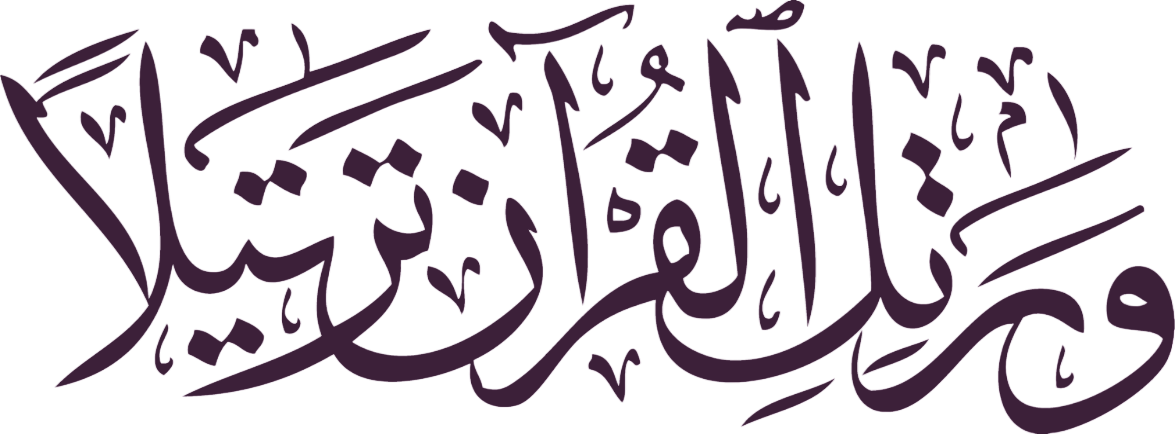 وَرَتِّلِ ٱلْقُرْآنَ تَرْتِيلًا